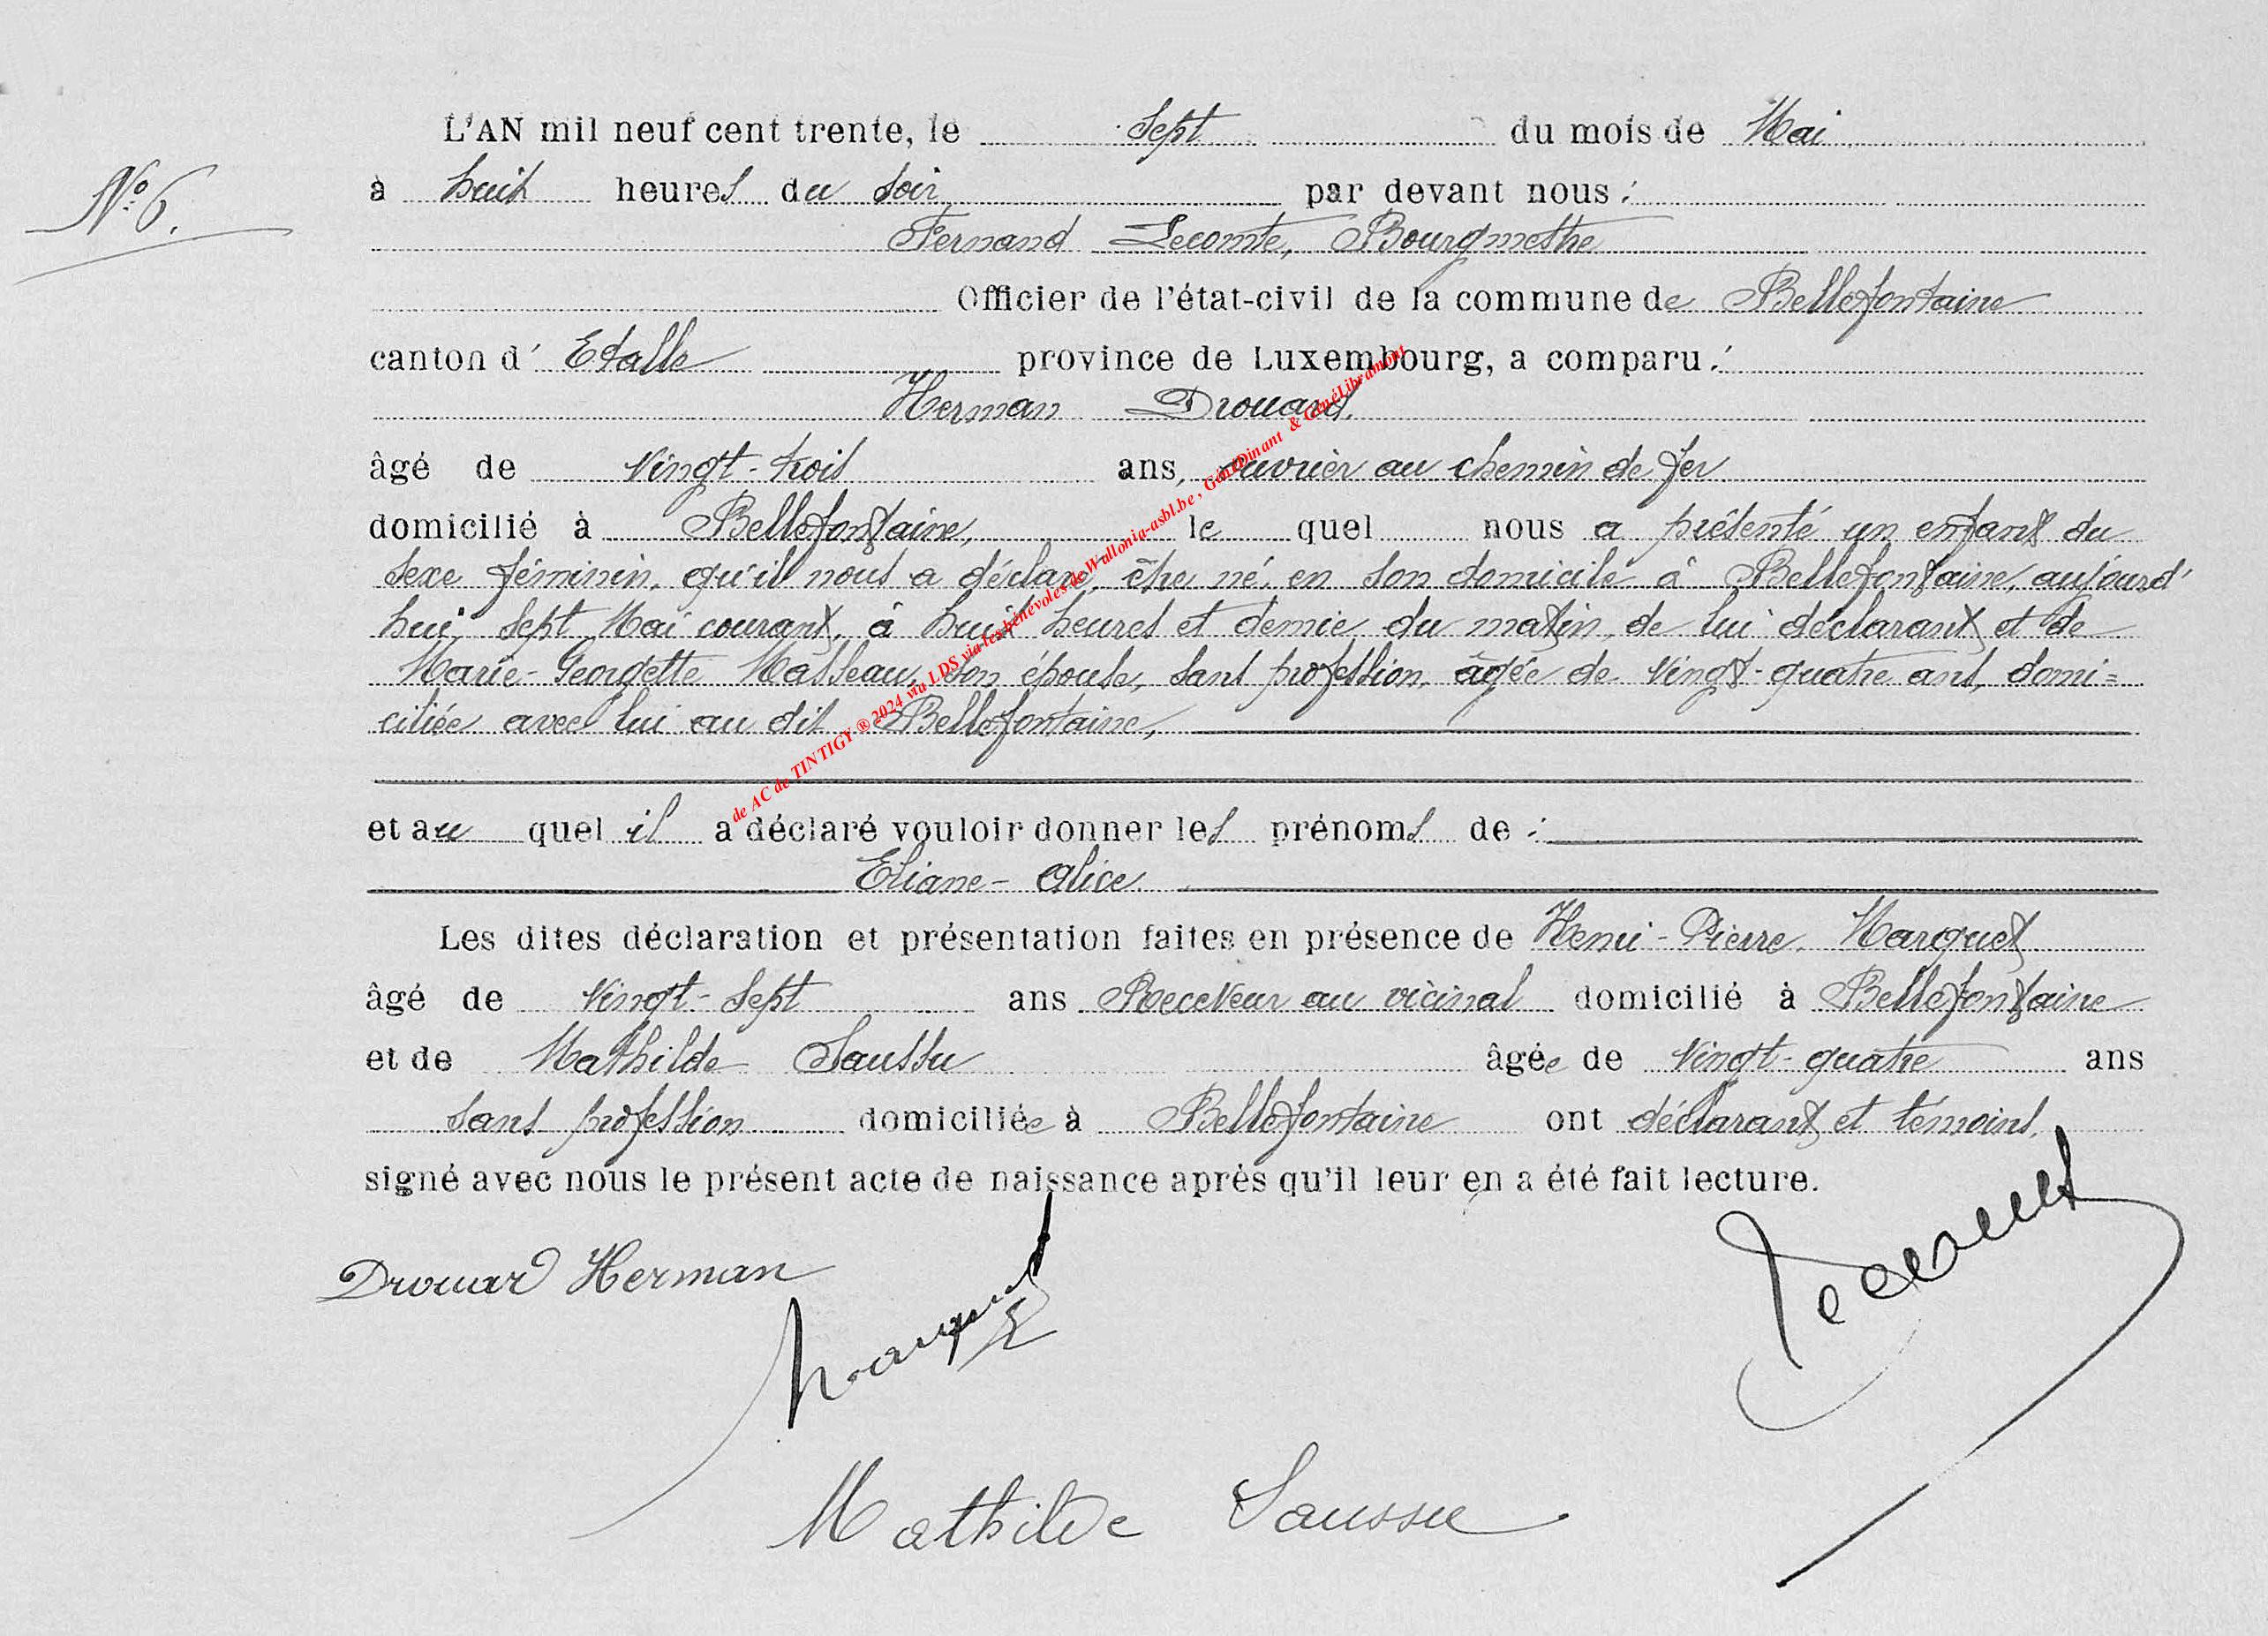 L'AN mil neuf cent trente, le Sept du mois de Mai
N° 6.
à huit heures du soir, par devant nous :
Fernand Lecomte, Bourgmestre
Officier de l'état-civil de la commune de Bellefontaine
canton d' Etalle province de Luxembourg, a comparu :
Herman Drouard,
âgé de vingt-trois ans, ouvrier au chemin de fer
domicilié à Bellefontaine, le quel nous a présenté un enfant du
sexe féminin, qu'il nous a déclaré être né, en son domicile à Bellefontaine, aujourd'
hui sept Mai courant, à huit heures et demie du matin, de lui déclarant et de
Marie-Georgette Masseau, son épouse, sans profession, âgée de vingt-quatre ans, domi=
ciliée avec lui au dit Bellefontaine,
et au quel il a déclaré vouloir donner les prénoms de :
Eliane - Alice
Les dites déclaration et présentation faites en présence de Henri-Pierre Marquet
âgé de vingt-sept ans Receveur au vicinal domicilié à Bellefontaine
et de Mathilde Saussu âgée de vingt-quatre ans
sans profession domiciliée à Bellefontaine ont déclarant et témoins,
signé avec nous le présent acte de naissance après qu'il leur en a été fait lecture.
Drouard Herman
Marquet
Lecomte
Mathilde Saussu
de AC de TINTIGY ® 2024 via LDS via les bénévoles de Wallonia-asbl.be, GénéDinant & GénéLibramont